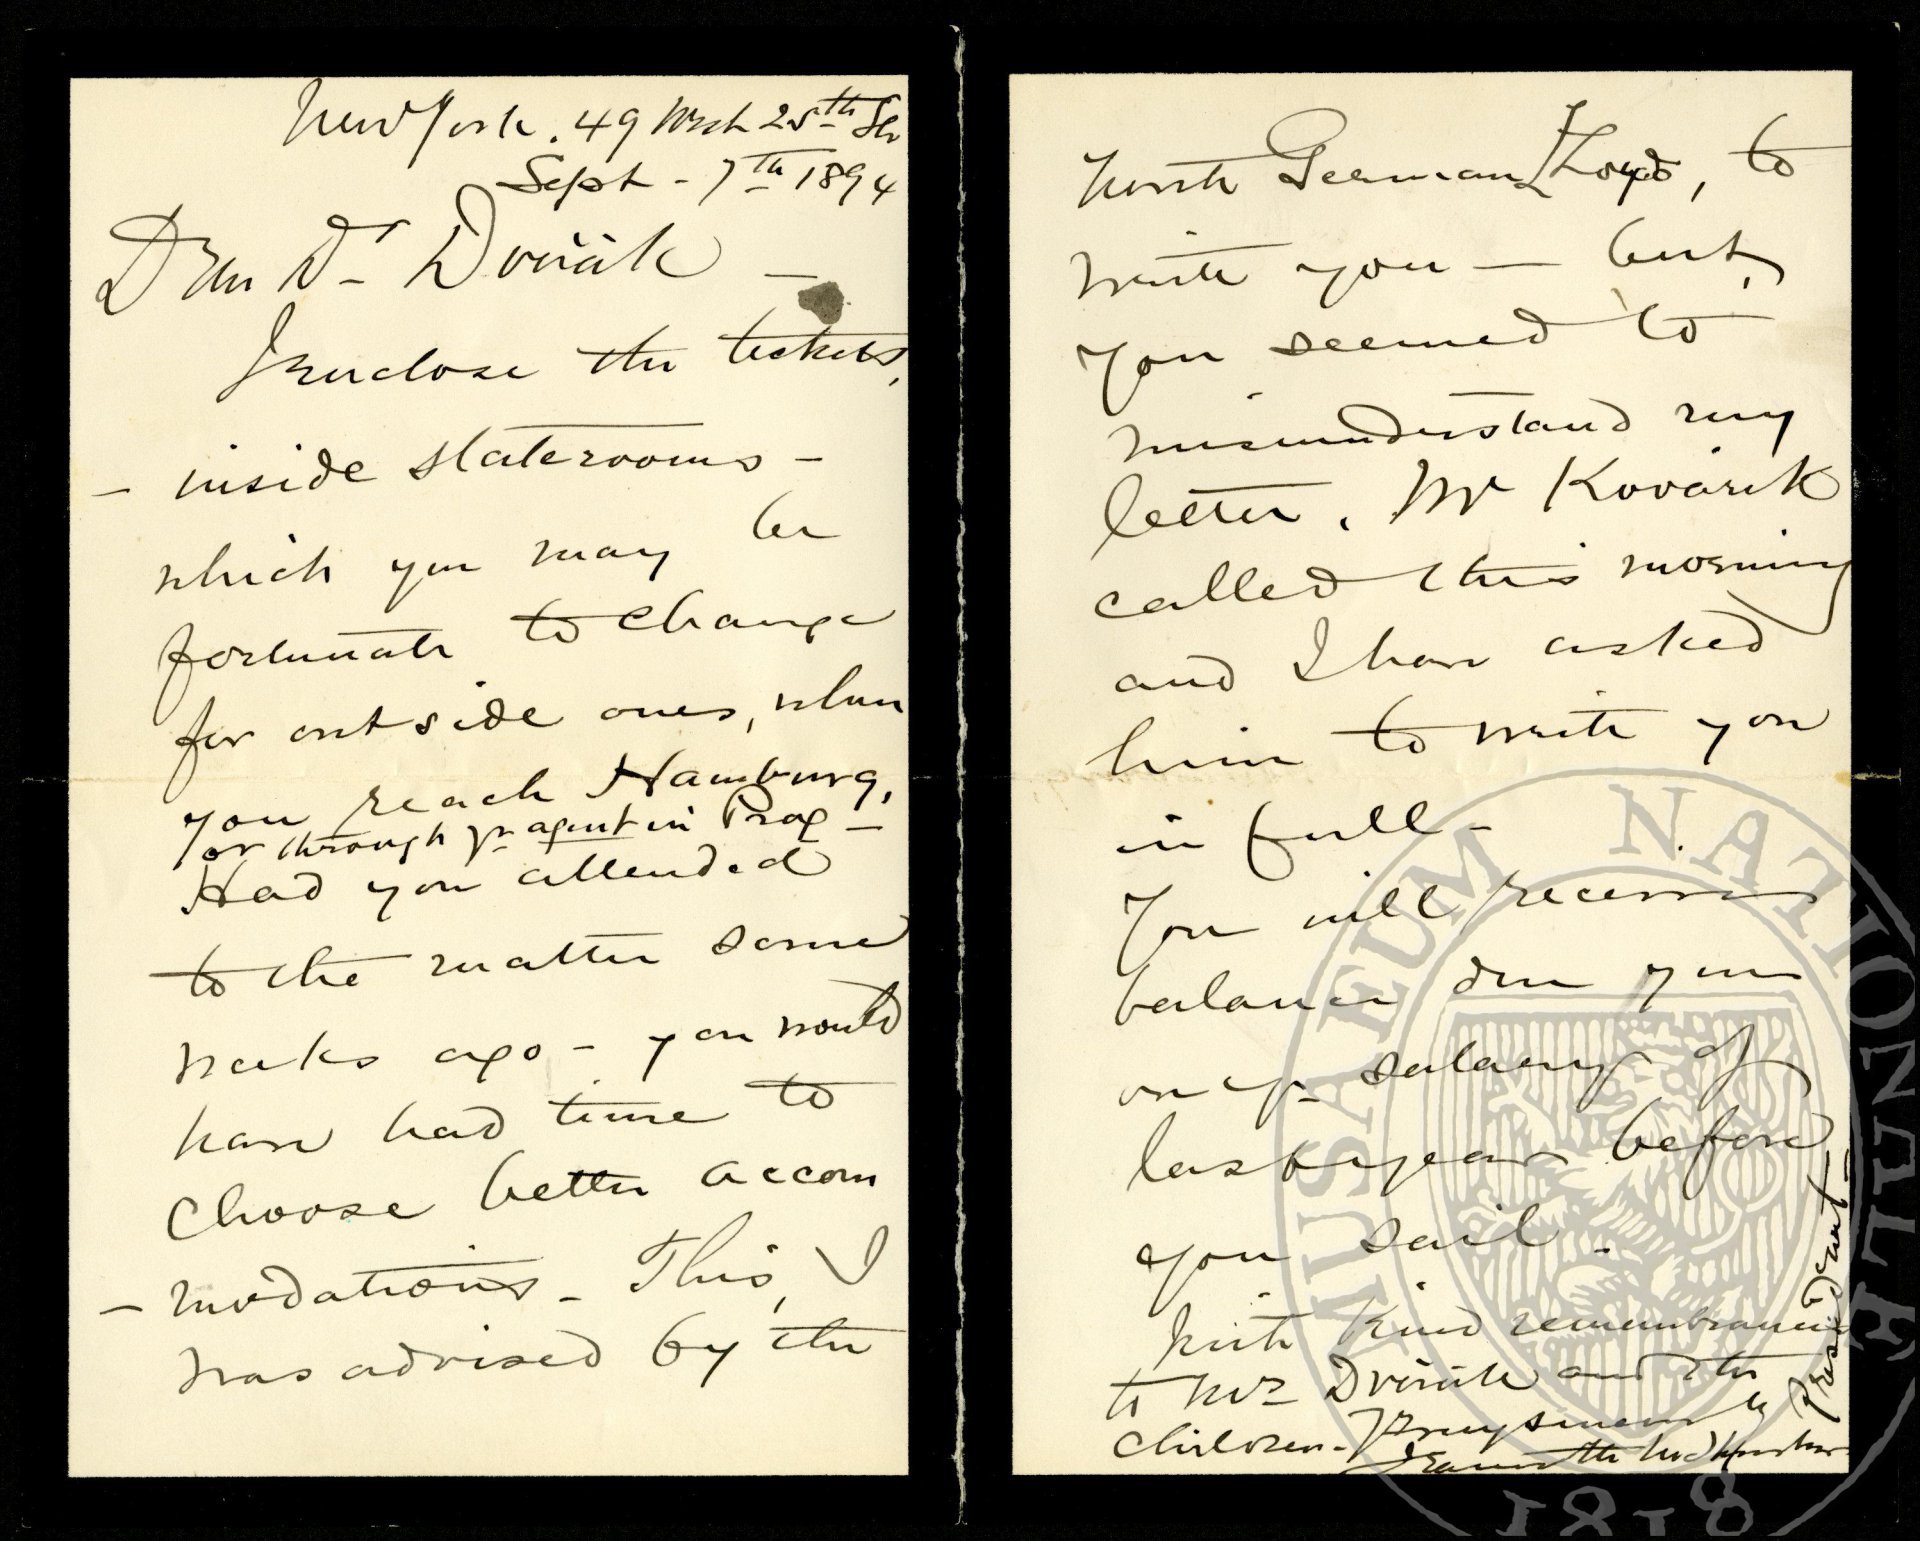 New York. 49 West 25th St
Sept - 7th 1894
Dear Dr Dvořák -
I enclose the tickets,
- inside staterooms -
which you may be
fortunate to change
for outside ones, when
you reach Hamburg,
or through yr agent in Prag -
Had you attended
to the matter some
weeks ago - you would
have had time to
choose better accom
- modations - This, I
was advised by the
North German Lloyd, to
write you - but,
you seemed to
misunderstand my
letter. Mr Kovařik
called this morning
and I have asked
him to write you
in full -
You will receive
balance due you
on yr salary of
last year before
you sail -
With kind remembrances
to Mrs Dvořák and the
children - Very sincerely
Jeannette M Thurber
President -
MUSAEUM NATIONALE
1818